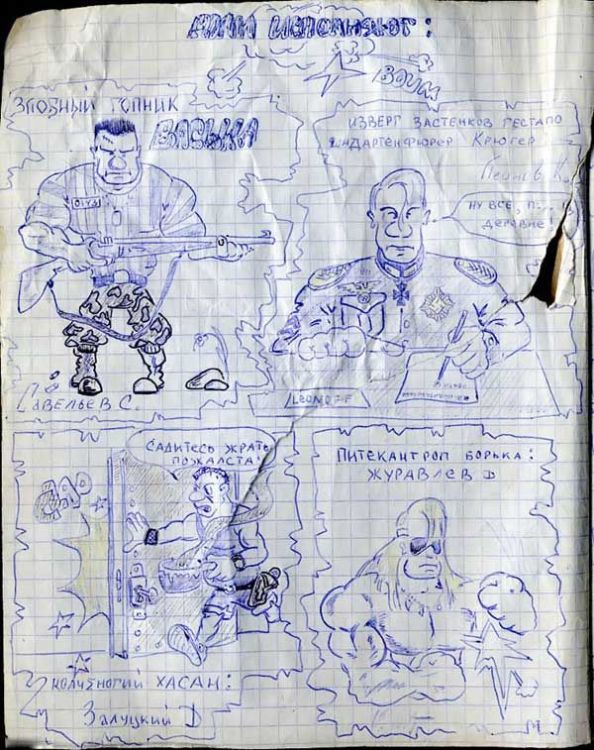 РОЛИ ИСПОЛНЯЮТ:
ВОИМ
ЗЛОБНЫЙ ГОПНИК
ВАСЬКА
САВЕЛЬЕВ С.
ИЗВЕРГ ЗАСТЕНКОВ ГЕСТАПО
ШТАНДАРТЕНФЮРЕР КРЮГЕР
НУ ВСЕ, П...
ДЕРЕВНЕ!
САДИТЕСЬ ЖРАТЬ
ПОЖАЛСТА!
КОЛЧЕНОГИЙ ХАСАН:
ЗАЛУЦКИЙ D
ПИТЕКАНТРОП БОРЬКА:
ЖУРАВЛЕВ D